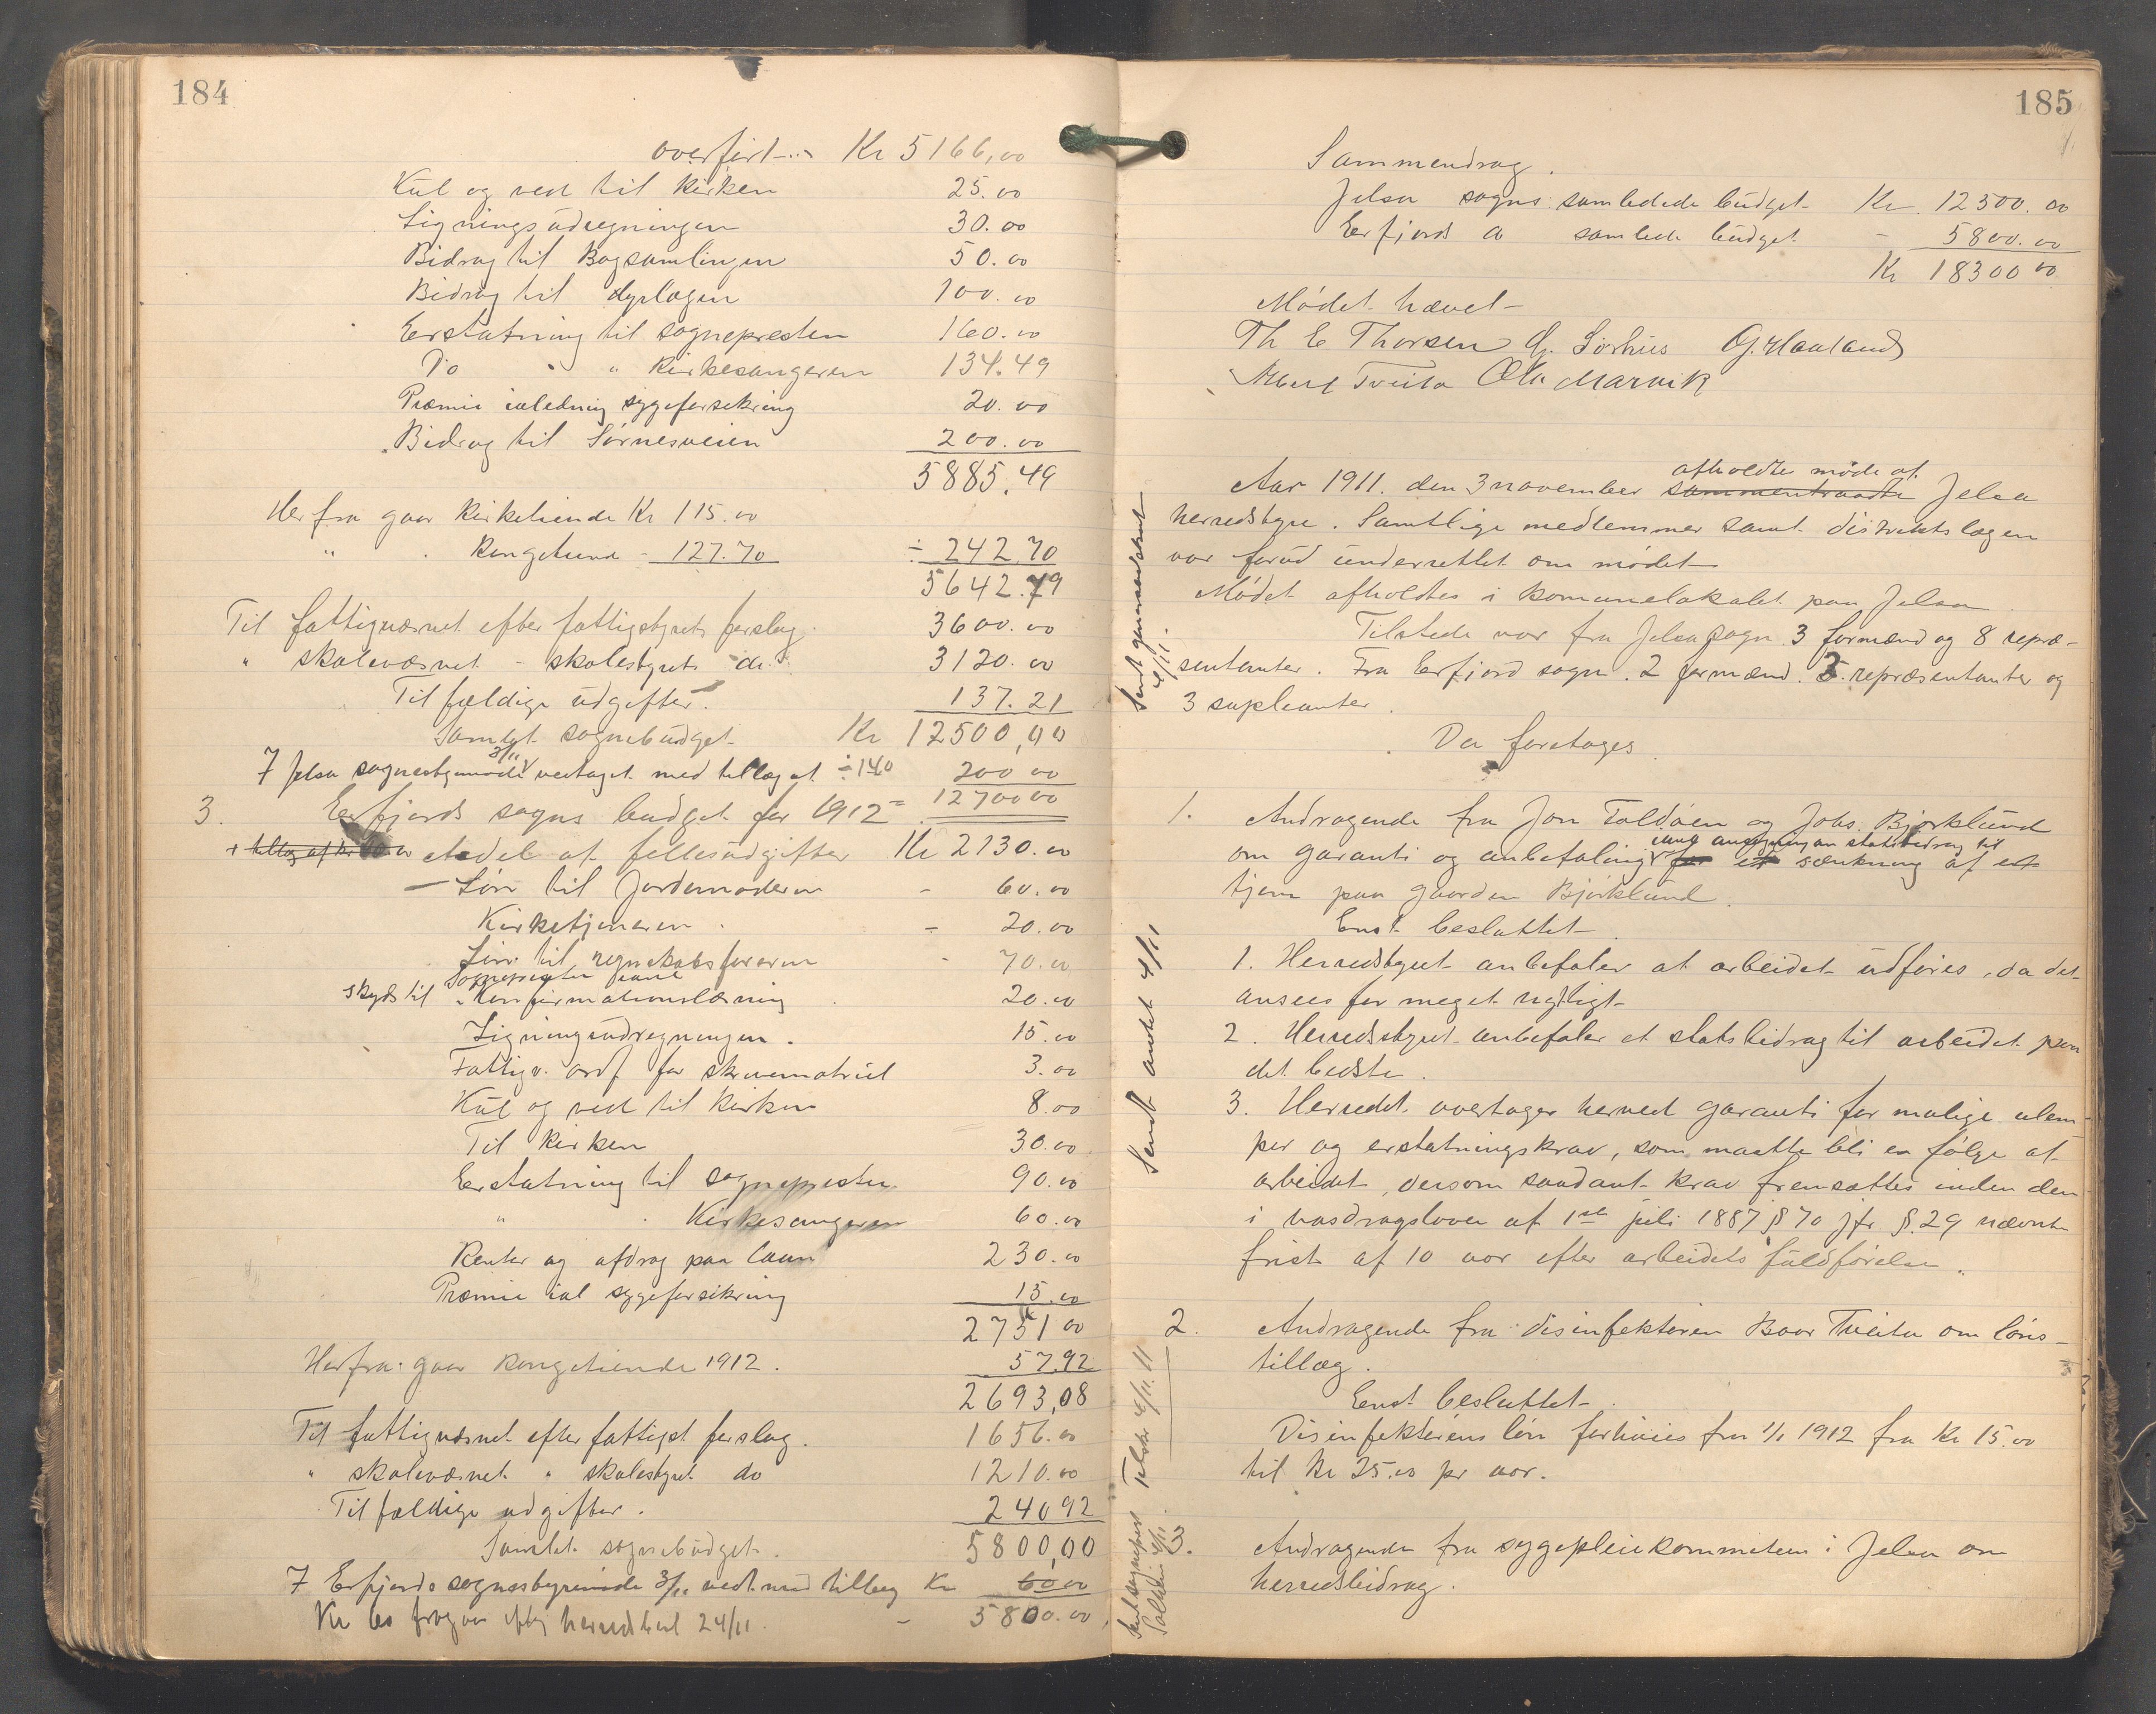 184
overført Kr 5166,00
Kul og ved til kirken 25.00
Ligningsudregningen 30.00
Bidrag til Bogsamlingen 50.00
Bidrag til dyrlægen 100.00
Erstatning til sognepresten 160.00
Do " " Kirkesangeren 134.49
Præmie sygeforsekring 20.00
Bidrag til Sørnesveien 200.00
5885.49
Her fra gaar Kirketiende Kr 115.00
" " Kongetiende - 127.70 ÷ 242.70
5642.79
Til fattigvæsnet efter fattigstyrets forslag 3600.00
" skolevæsnet - skolestyrets do 3120.00
Tilfældige udgifter. 137.21
Samlet sognebudget Kr 12500,00
I Jelsa sognestyremøde 3/11 vedtaget med tillæg af ÷ 140 200 00
12700 00
3. Erfjords sogns budget for 1912
+ tillæg af kr Andel af fellesudgifter Kr 2130.00
- Løn til Jordemoderen - 60.00
Kirketjeneren - 20.00
Løn til regnskabsføreren - 70.00
Sognepresten
skyds til Konfirmationslæsning 20.00
Ligningsudregningen. 15.00
Fattigv. ordf for skrivematriel 3.00
Kul og ved til kirken 8.00
Til kirken 30.00
Erstatning til sognepresten 90.00
" Kirkesangeren 60.00
Renter og afdrag paa laan 230.00
Præmie sygeforsikring 15.00
2751 00
Herfra gaar Kongetiende 1912. 57.92
2693,08
Til fattigvæsnet efter fattigst forslag. 1656.00
" skolevæsnet " skolestyret do 1210.00
Tilfældige udgifter. 240 92
Samlet sognebudget. 5800,00
I Erfjords sognestyremøde 3/11 vedt. med tillæg Kr 60 00
Kr 60 fragaar herredsbesl 24/11 - 5800.00
185
Sammendrag.
Jelsa sogns samlede budget Kr 12500.00
Erfjords do samlede budget - 5800.00
Kr 18300 00
Mødet hævet
Th E Thorsen G. Sørhus G. Haaland
Tveita Ola Marvik
afholdtes møde af
Aar 1911. den 3 november sammentraadte Jelsa
herredstyre. Samtlige medlemmer samt distriktslægen
var forud underrettet om mødet
Mødet afholdtes i komunelokalet paa Jelsa.
Tilstede var fra Jelsa sogn 3 formænd og 8 repræ-
sentanter. Fra Erfjord sogn. 2 formænd. 3. repræsentanter og
3 supleanter.
Da foretages
1. Andragende fra Jon Foldøen og Johs. Bjørklund
ansøgning om statsbidrag til
om garanti og anbefaling for et sænkning af et
tjern paa gaarden Bjørklund.
Enst. besluttet.
1. Herredstyret anbefaler at arbeidet udføres, da det
ansees for meget nyttigt
2. Herredsstyret anbefaler et statsbidrag til arbeidet paa
det bedste.
3. Herredet overtager herved garanti for mulige ulem-
per og erstatningskrav, som maatte bli en følge af
arbeidet, dersom saadant krav fremsættes inden den
i vasdragsloven af 1ste juli 1887 § 70 jfr. §. 29 nævnte
frist af 10 aar efter arbeidets fuldførelse.
Sendt andet 4/11
2. Andragende fra disinfektøren Baar Tveita om løns-
tillæg.
Enst besluttet.
Disinfektørens løn forhøies fra 1/1 1912 fra Kr 15.00
til Kr 25.00 pr aar.
3. Andragende fra sygepleiekommiteen i Jelsa om
herredsbidrag.